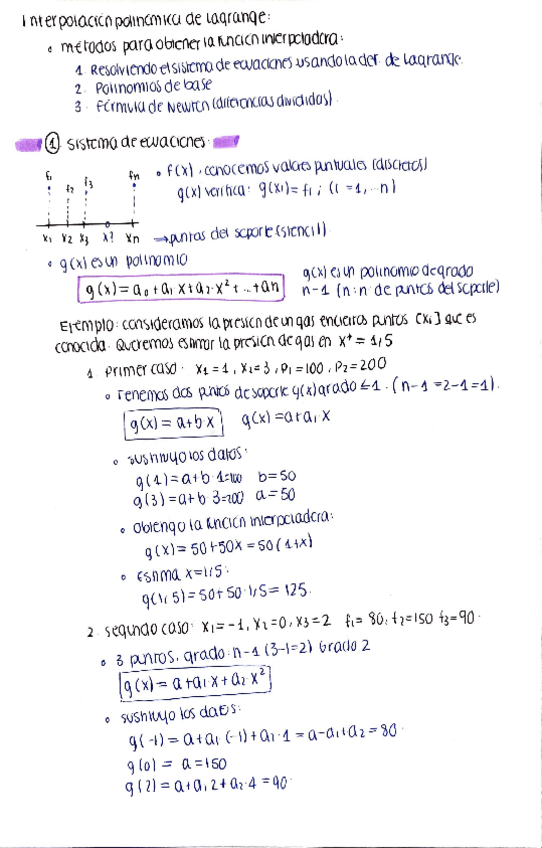 Interpolación polinómica de Lagrange:
• métodos para obtener la función interpoladora:
1. Resolviendo el sistema de ecuaciones usando la def. de Lagrange.
2. Polinomios de base
3. Fórmula de Newton (diferencias divididas).
① Sistema de ecuaciones:
f₁ f₂ f₃ fn
x₁ x₂ x₃ x? xn → puntos del soporte (stencil).
• f(x), conocemos valores puntuales (discretos)
g(x) verifica: g(xi) = fi ; (i = 1, ... n)
• g(x) es un polinomio
g(x) = a₀ + a₁ x + a₂ · x² + ... + an
g(x) es un polinomio de grado
n-1 (n: nº de puntos del soporte)
Ejemplo: consideramos la presión de un gas en ciertos puntos (xi] que es
conocida. Queremos estimar la presión de gas en x* = 1,5
1. Primer caso: x₁ = 1, x₂ = 3, p₁ = 100, p₂ = 200
• Tenemos dos puntos de soporte g(x) grado ≤ 1. (n-1 = 2-1 = 1).
g(x) = a + b x g(x) = a + a₁ x
• sustituyo los datos:
g(1) = a + b · 1 = 100 b = 50
g(3) = a + b · 3 = 200 a = 50
• Obtengo la función interpoladora:
g(x) = 50 + 50x = 50(1+x)
• Estima x = 1,5:
g(1,5) = 50 + 50 · 1,5 = 125.
2. Segundo caso: x₁ = -1, x₂ = 0, x₃ = 2 f₁ = 80, f₂ = 150 f₃ = 90.
• 3 puntos, grado: n-1 (3-1=2) Grado 2
g(x) = a + a₁ · x + a₂ · x²
• sustituyo los datos:
g(-1) = a + a₁ (-1) + a₂ · 1 = a - a₁ + a₂ = 80.
g(0) = a = 150
g(2) = a + a₁ 2 + a₂ · 4 = 90.